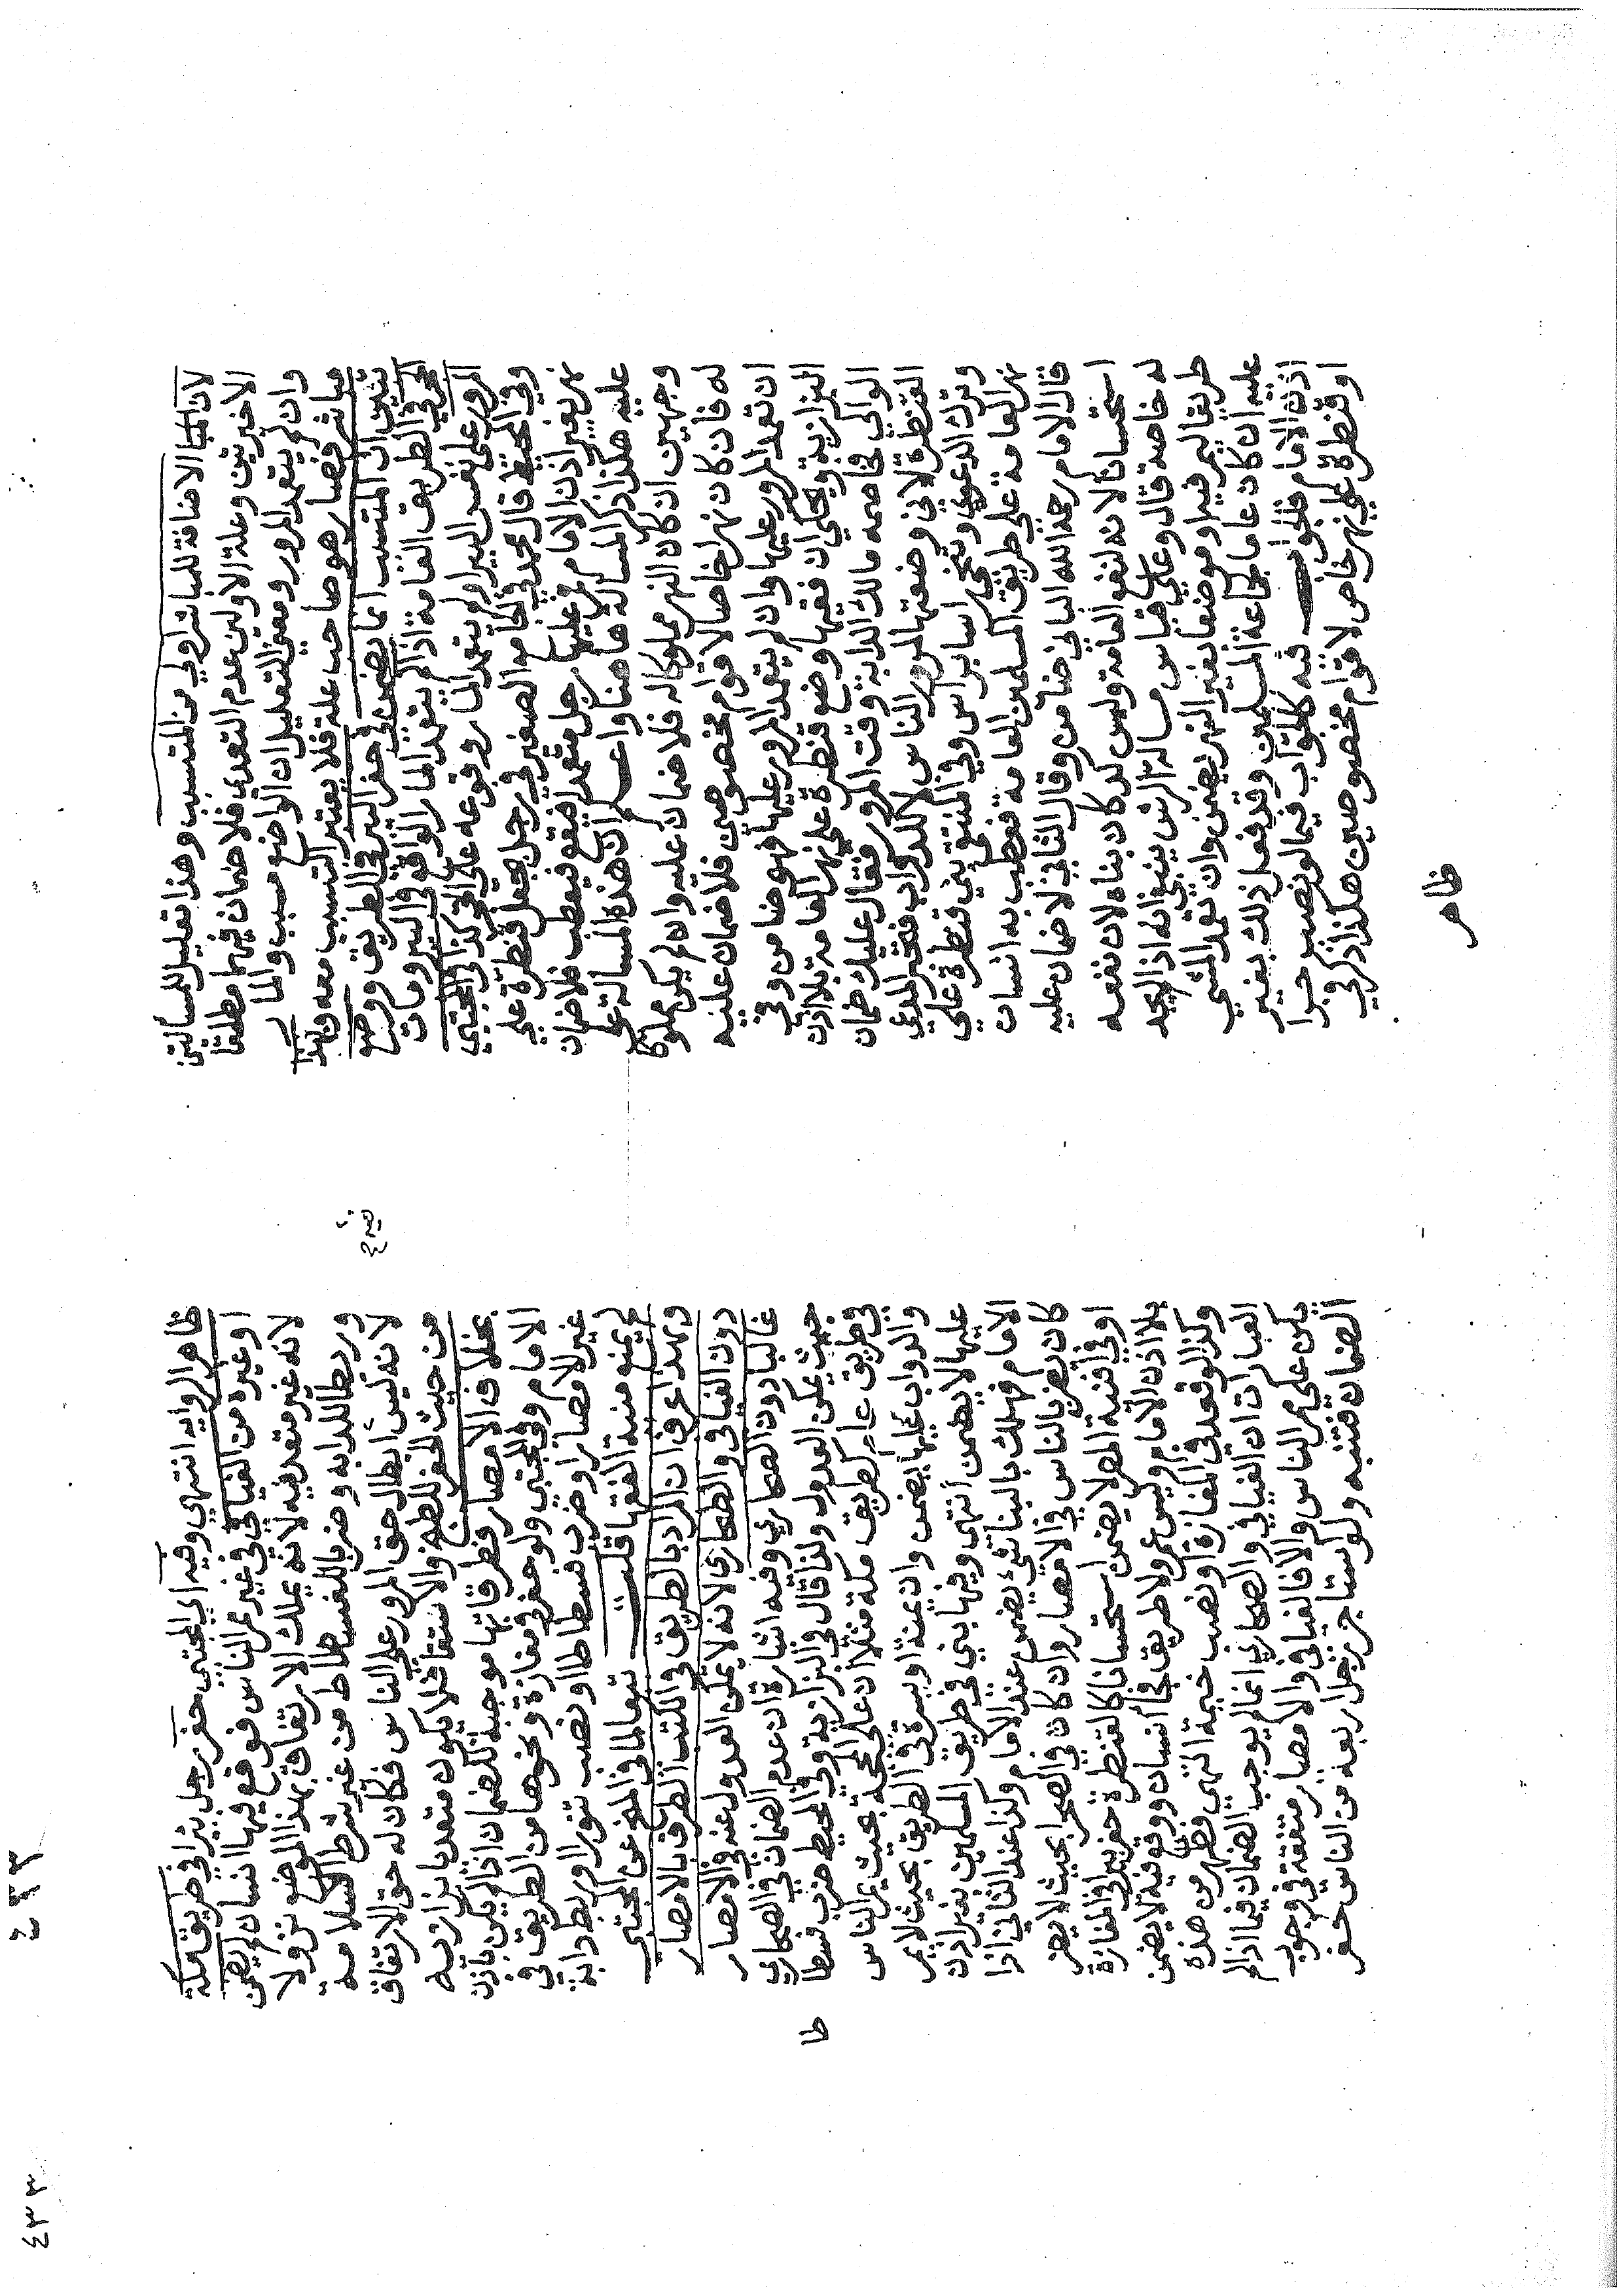 لان المبا الاضافة للمباشر اولي من المتسبب وهذا تعليل للمسألتين
الاخيرتين وعلة الاولين عدم التعدي فلا ضمان فيهما مطلقا
وان لم يتعمد المرور ومعني التعليل ان الواضع مسبب والمار
مباشر فصار هو صاحب علة فلا يعتبر التسبيب معه وبهذا
تبين ان المتسبب انما يضمن في حفر البئر في الطريق ووضع
الحجر في الطريق العامة اذا لم يتعمد المار الواقع في البير ومات
المرور علي نفس البير او لم يتعمد المار وقوعه علي الحجر كذا في المجتبي
وفي المحيط قال محمد في الجامع الصغير في رجل جعل قنطرة علي
نهر بغير اذن الامام فمر عليها رجل متعمدا فيقع فيعطب فلا ضمان
عليه هكذا ذكر المسالة ها هنا واعلم ان هذه المسالة علي
وجهين ان كان النهر مملوكا له فلا ضمان عليه وان لم يكن مملوكا
له فان كان نهرا خاصا لاقوام مخصوصين فلا ضمان عليه
ان تعمد المرور عليها وان لم يتعمد المرور عليها فهو ضامن وفي
البزازية ويحكي ان فقيها وضع قنطرة علي نهر العامة بلا اذن
الوالي فخاصمه مالك الدابة وقت المرور فقال عليك ضمان
القنطرة لاني وضعتها لمرور الناس لا للدواب فتحير المدعي
وترك الدعوي وتنحي راسا براس وفي المنتقي بني قنطرة علي
نهر العامة علي طريق المسلمين العامة فعطب به انسان
قال الامام رحمه الله الباني ضامن وقال الثاني لا ضمان عليه
استحسانا لانه لنفع العامة وليس لو كان بناه لان نفعه
له خاصة قال وعلي قياس مسالة الرش ينبغي انه اذا لم يجد
طريقا ليمر فيه او موضعا بغير النهر يضمن وان تعمد المشي
عليه ان كان عاما لجماعة المسلمين وقد فعل ذلك بغير
اذن الامام فالجواب فيه كالجواب فيما لو نصب جسرا
او قنطرة علي نهر خاص لاقوام مخصوصين هكذا ذكر في
ظاهر
ظاهر الرواية انتهي وفيه اي المجتبي حفر رجل بئرا في طريق مكة
او غيره من الفيافي في غير ممر الناس فوقع فيها انسان لم يضمن
لانه غير متعد فيه لانه يملك الارتفاق بهذا الموضع نزولا
وربطا للدابة وضربا للفسطاط من غير شرط السلامة
لانه ليس ابطال حق المرور علي الناس فكان له حق الارتفاق
من حيث الحفر للطبخ والاستقا فلا يكون متعديا بزازيه
بخلاف الامصار فطرقاتها موجبة للضمان اذا لم يكن باذن
الامام وفي المجتبي ولو حفر في مفازة ونحوها من الطريق في
غير الامصار او ضرب فسطاطا او نصب تنورا او ربط دابة
لم يمنع منية الفقها قلت تبعا لما في المنح عن المجتبي
وبهذا عرف ان المراد بالطريق في الكتب الطرق بالامصار
دون الفيافي والصحاري لانه لا يمكن العدول عنه في الامصار
غالبا دون الصحاري وفيه اشارة ان عدم الضمان في الصحاري
حيث يمكن العدول ولذا قال في البزازية وفي المحيط ضرب فسطا
طا
في طريق عام كطريق مكة مثلا ان علي المحجة بحيث يمر الناس
والدواب عليها يضمن وان يمنة او يسرة في الطريق بحيث لا يمر
عليها لا يضمن انتهي وفيها بني في طريق المسلمين بغير اذن
الامام فهلك بالبنا شيء يضمن عند الامام وكذا عند الثاني اذا
كان يضر بالناس في الامصار وان كان في الصحرا بحيث لا يضر
او في افنية المصر لا يضمن استحسانا كالقنطرة حفر بيرا في المفازة
بلا اذن الامام وليس بممر ولا طريق فجا انسان ووقع فيه لا يضمن
وكذا لو قعد في المفازة او نصب خيمة انتهي فظهر من هذه
العبارات ان الفيافي والصحاري انما لم يوجب الضمان فيما اذا لم
يكن علي ممر الناس والا فالفيافي والامصار متفقة في وجوب
الضمان فتنبه ولو استاجر رجل اربعة من الناس حفر
٤٣٣